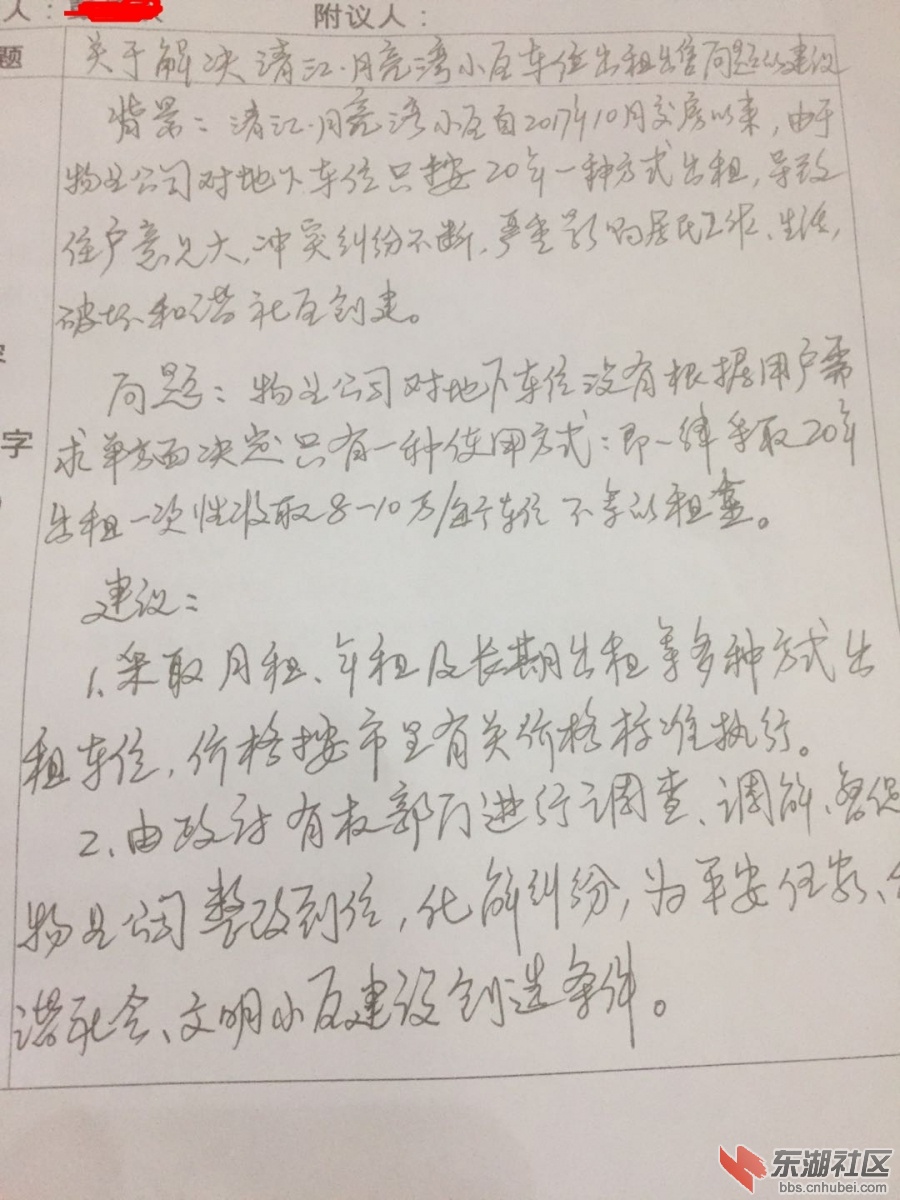 人：
附议人：
题
关于解决清江·月亮湾小区车位出租出售问题的建议
背景：清江·月亮湾小区自2017年10月交房以来，由于
物业公司对地下车位只按20年一种方式出租，导致
住户意见大，冲突纠纷不断，严重影响居民工作、生活，
破坏和谐社区创建。
问题：物业公司对地下车位没有根据用户需
字
求单方面决定只有一种使用方式：即一律采取20年
出租一次性收取8-10万/每个车位 不予以租售。
建议：
1、采取月租、年租及长期出租等多种方式出
租车位，价格按市里有关价格标准执行。
2、由政府有权部门进行调查、调解、督促
物业公司整改到位，化解纠纷，为平安
谐社会、文明小区建设创造条件。
东湖社区
bbs.cnhubei.com